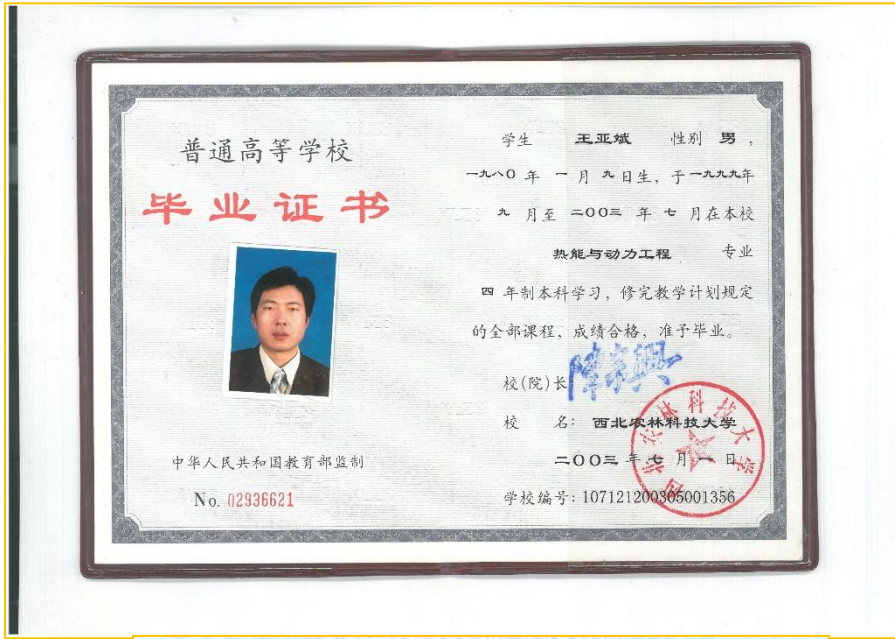 普通高等学校
毕业证书
中华人民共和国教育部监制
No. 02936621
学生 王亚斌 性别 男，
一九八〇年 一月九日生，于一九九九年
九月至 二〇〇三年七月在本校
热能与动力工程 专业
四年制本科学习，修完教学计划规定
的全部课程，成绩合格，准予毕业。
校(院)长 陈宗兴
校 名：西北农林科技大学
二〇〇三年七月一日
学校编号：107121200305001356
西北农林科技大学